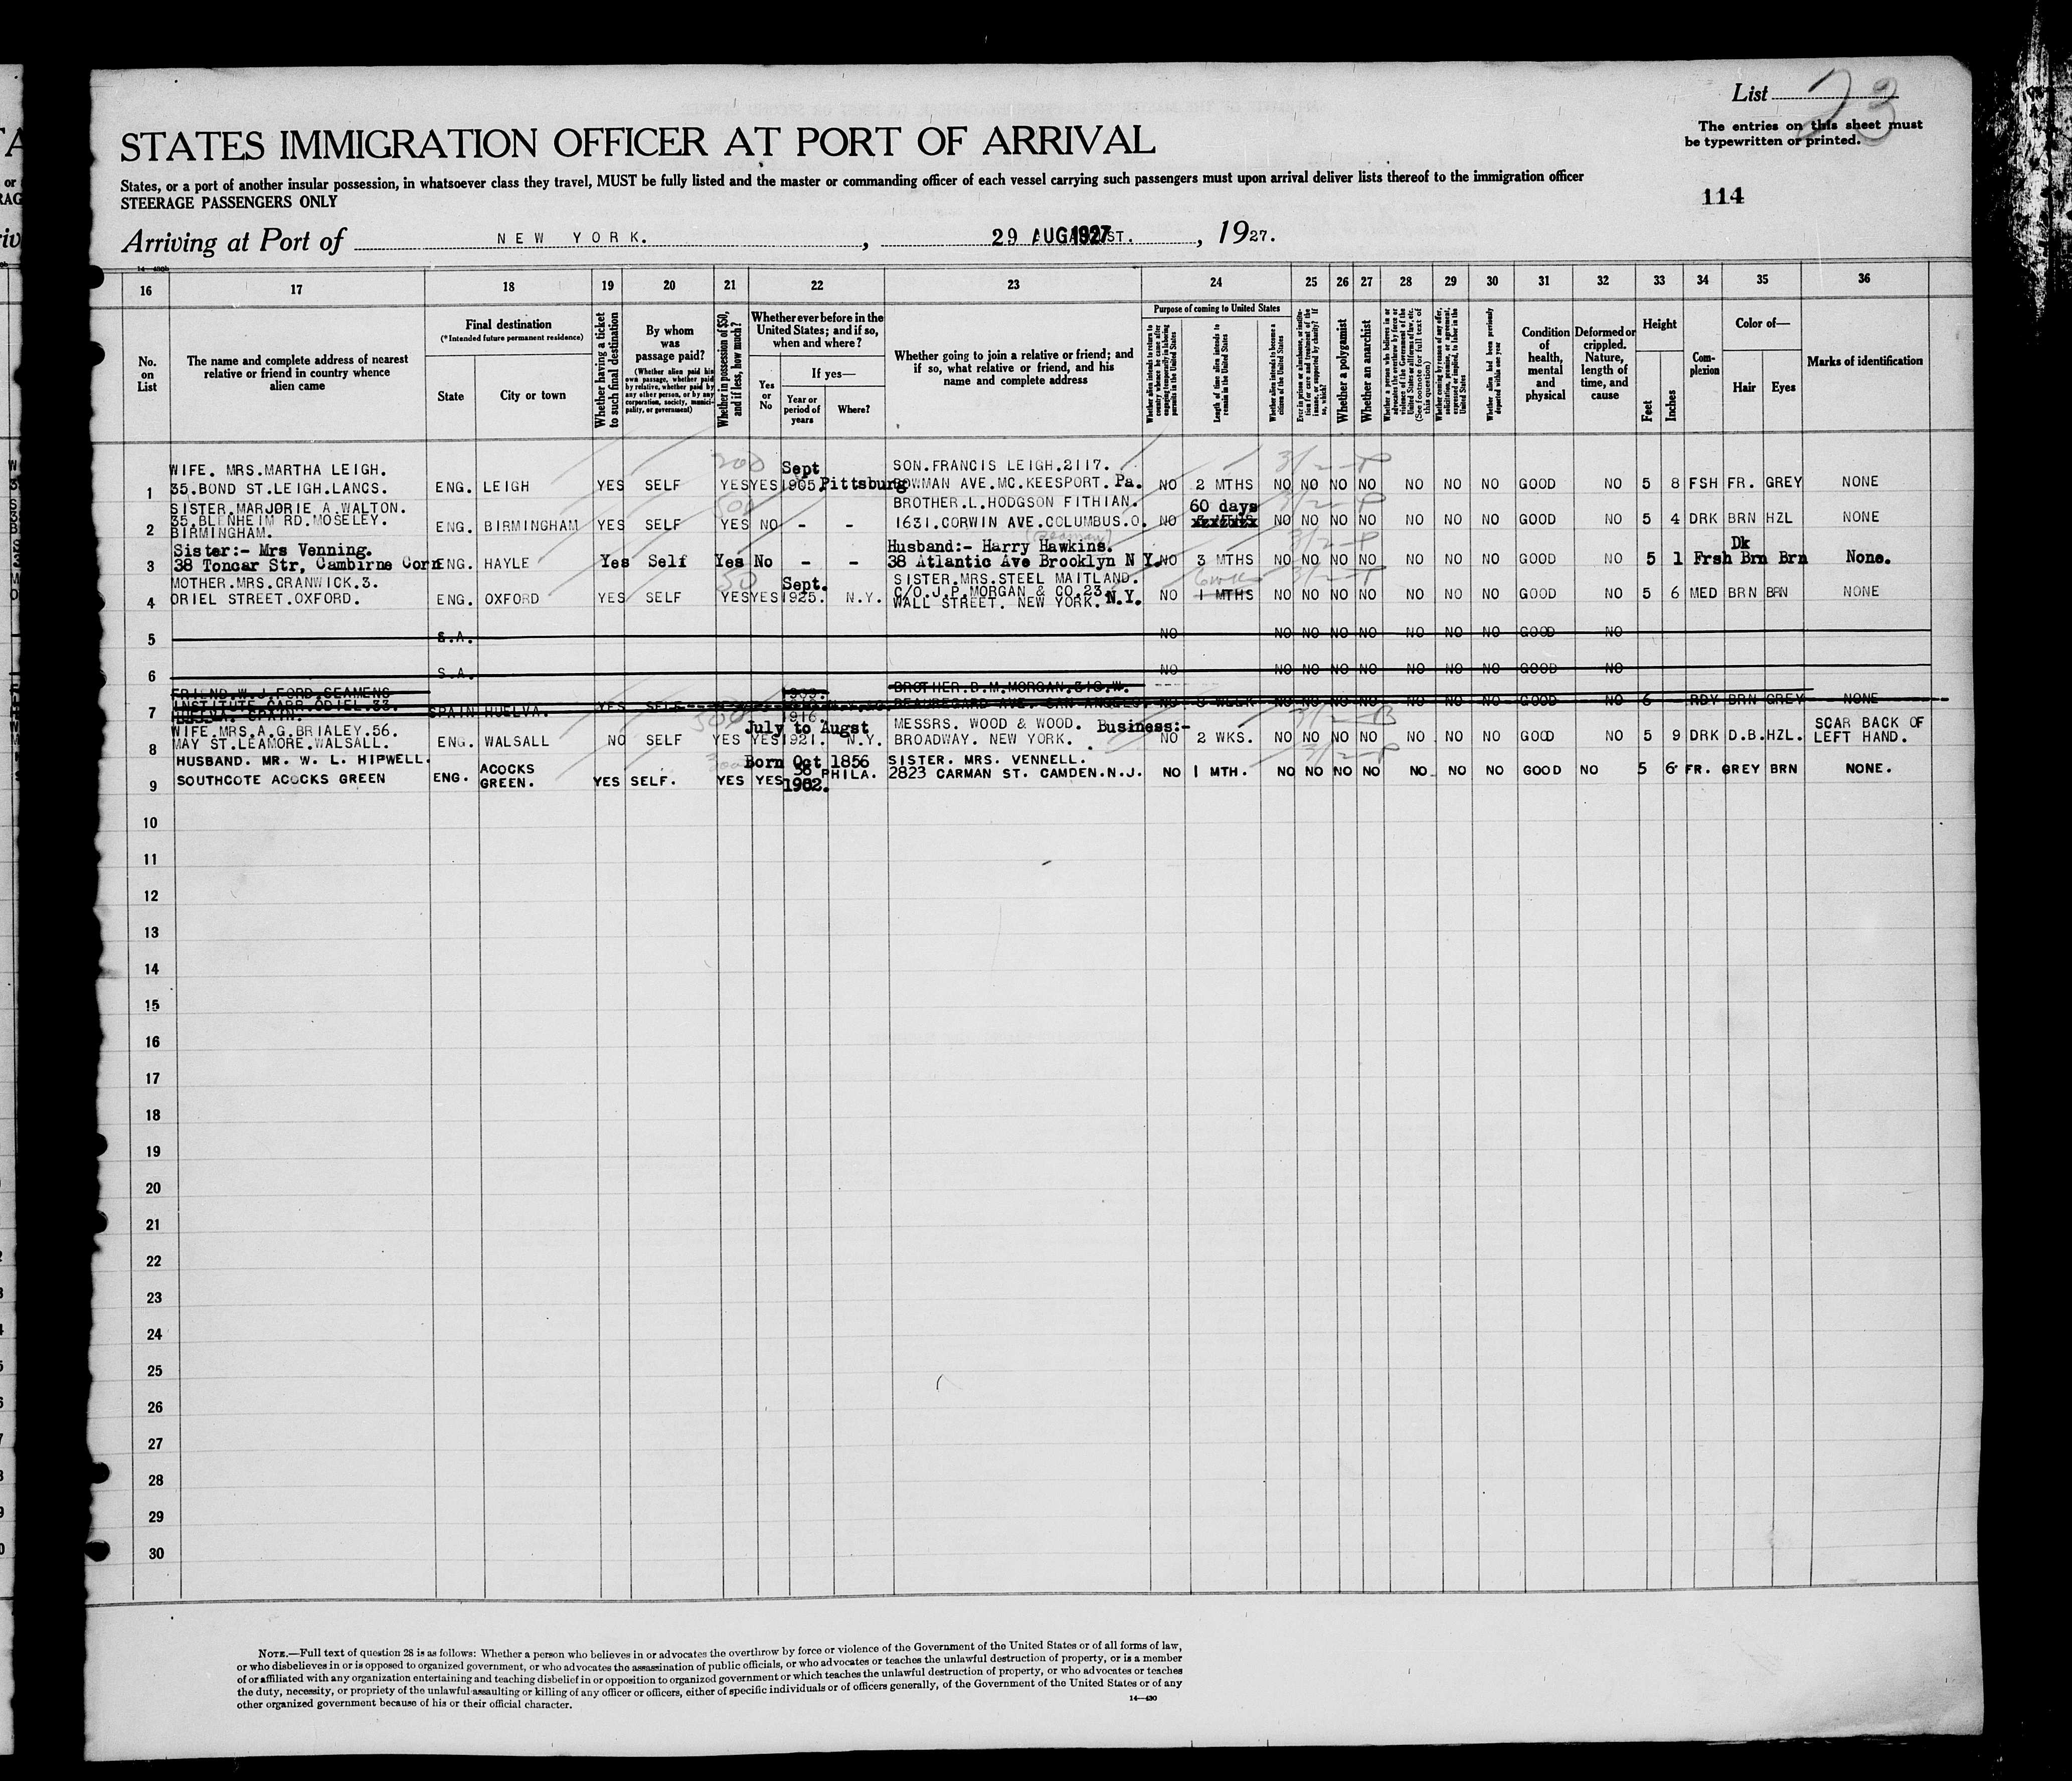 List 23
The entries on this sheet must
be typewritten or printed.
STATES IMMIGRATION OFFICER AT PORT OF ARRIVAL
States, or a port of another insular possession, in whatsoever class they travel, MUST be fully listed and the master or commanding officer of each vessel carrying such passengers must upon arrival deliver lists thereof to the immigration officer
STEERAGE PASSENGERS ONLY
114
Arriving at Port of NEW YORK. , 29 AUG 1927 , 1927.
16 17 18 19 20 21 22 23 24 25 26 27 28 29 30 31 32 33 34 35 36
No. on List
The name and complete address of nearest relative or friend in country whence alien came
Final destination
(*Intended future permanent residence)
State
City or town
Whether having a ticket to such final destination
By whom was passage paid?
(Whether alien paid his own passage, whether paid by relative, whether paid by any other person, or by any corporation, society, municipality, or government)
Whether in possession of $50, and if less, how much?
Whether ever before in the United States; and if so, when and where?
Yes or No
If yes—
Year or period of years
Where?
Whether going to join a relative or friend; and if so, what relative or friend, and his name and complete address
Purpose of coming to United States
Whether alien intends to return to country whence he came after engaging temporarily in laboring pursuits in the United States
Length of time alien intends to remain in the United States
Whether alien intends to become a citizen of the United States
Ever in prison or almshouse, or institution for care and treatment of the insane, or supported by charity? If so, which?
Whether a polygamist
Whether an anarchist
(See footnote for full text of this question)
Whether coming by reason of any offer, solicitation, promise, or agreement, expressed or implied, to labor in the United States
Whether alien had been previously deported within one year
Condition of health, mental and physical
Deformed or crippled. Nature, length of time, and cause
Height
Feet
Inches
Complexion
Color of—
Hair
Eyes
Marks of identification
WIFE. MRS.MARTHA LEIGH. 200 Sept SON.FRANCIS LEIGH.2117.
1 35.BOND ST.LEIGH.LANCS. ENG. LEIGH YES SELF YES YES 1905 Pittsburg BOWMAN AVE.MC.KEESPORT. Pa. NO 2 MTHS NO NO NO NO NO NO NO GOOD NO 5 8 FSH FR. GREY NONE
SISTER.MARJORIE A.WALTON. BROTHER.L.HODGSON FITHIAN. 60 days
2 35.BLENHEIM RD.MOSELEY. ENG. BIRMINGHAM YES SELF YES NO - - 1631.CORWIN AVE.COLUMBUS.O. NO NO NO NO NO NO NO NO GOOD NO 5 4 DRK BRN HZL NONE
BIRMINGHAM.
Sister:- Mrs Venning. Husband:- Harry Hawkins. Dk
3 38 Toncar Str, Cambirne Corn ENG. HAYLE Yes Self Yes No - - 38 Atlantic Ave Brooklyn N Y. NO 3 MTHS NO NO NO NO NO NO NO GOOD NO 5 1 Frsh Brn Brn None.
MOTHER.MRS.CRANWICK.3. 50 Sept. SISTER.MRS.STEEL MAITLAND. 6 wks
4 ORIEL STREET.OXFORD. ENG. OXFORD YES SELF YES YES 1925. N.Y. C/O.J.P.MORGAN & CO.23. NO 1 MTHS NO NO NO NO NO NO NO GOOD NO 5 6 MED BRN BRN NONE
WALL STREET. NEW YORK. N.Y.
5 S.A. NO NO NO NO NO NO NO NO GOOD NO
6 S.A. NO NO NO NO NO NO NO NO GOOD NO
FRIEND.W.J.FORD.SEAMENS BROTHER.B.M.MORGAN.
7 SPAIN HUELVA. YES SELF BEAUREGARD AVE. SAN ANGELO NO NO NO NO NO NO NO NO GOOD NO 6 RDY BRN GREY NONE
HUELVA. SPAIN. 1916.
WIFE.MRS.A.G.BRIALEY.56. 500 July to Augst MESSRS. WOOD & WOOD. Business:- SCAR BACK OF
8 MAY ST.LEAMORE.WALSALL. ENG. WALSALL NO SELF YES YES 1921. N.Y. BROADWAY. NEW YORK. NO 2 WKS. NO NO NO NO NO NO NO GOOD NO 5 9 DRK D.B. HZL. LEFT HAND.
HUSBAND. MR. W. L. HIPWELL. Born Oct 1856 SISTER. MRS. VENNELL.
9 SOUTHCOTE ACOCKS GREEN ENG. ACOCKS GREEN. YES SELF. YES YES 1902. PHILA. 2823 CARMAN ST. CAMDEN.N.J. NO 1 MTH. NO NO NO NO NO NO NO GOOD NO 5 6 FR. GREY BRN NONE.
10
11
12
13
14
15
16
17
18
19
20
21
22
23
24
25
26
27
28
29
30
NOTE.—Full text of question 28 is as follows: Whether a person who believes in or advocates the overthrow by force or violence of the Government of the United States or of all forms of law,
or who disbelieves in or is opposed to organized government, or who advocates the assassination of public officials, or who advocates or teaches the unlawful destruction of property, or is a member
of or affiliated with any organization entertaining and teaching disbelief in or opposition to organized government or which teaches the unlawful destruction of property, or who advocates or teaches
the duty, necessity, or propriety of the unlawful assaulting or killing of any officer or officers, either of specific individuals or of officers generally, of the Government of the United States or of any
other organized government because of his or their official character.
14—430